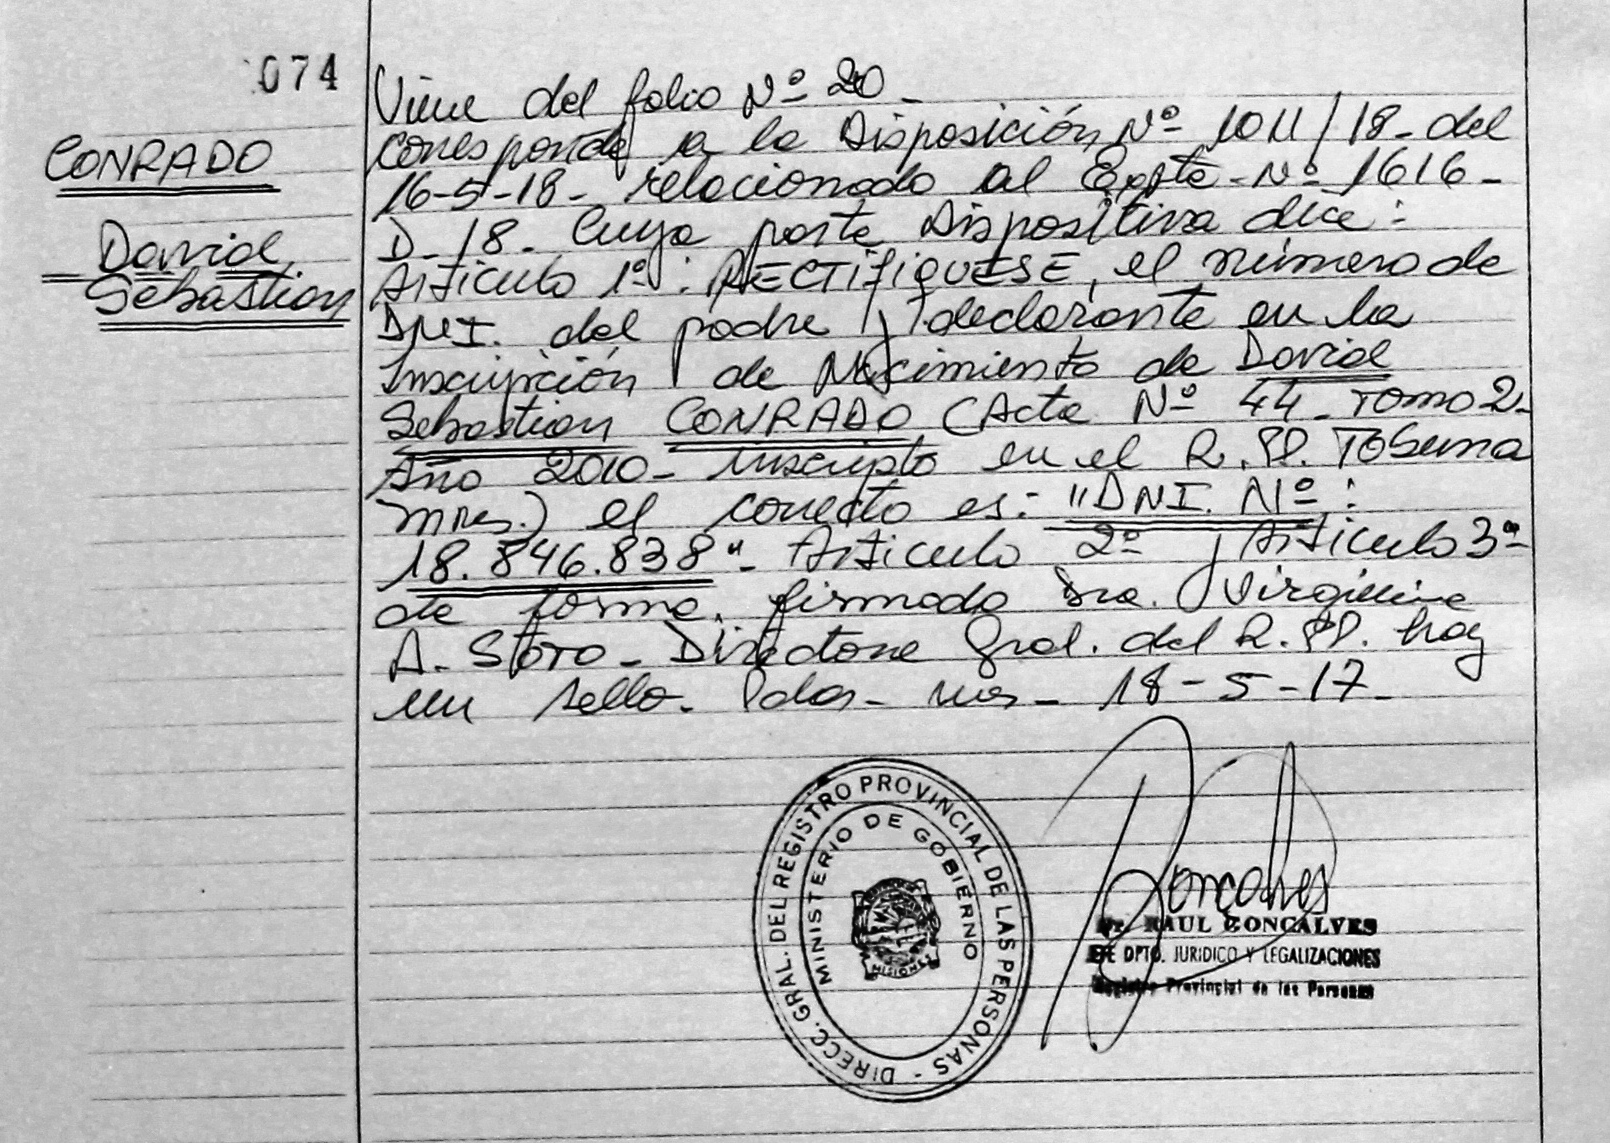 074
CONRADO
David
Sebastian
Viene del folio Nº 20_
corresponde a la Disposición Nº 1011/18_ del
16-5-18_ relacionado al Expte_Nº 1616_
D_18_ Cuya parte Dispositiva dice:
Articulo 1º: RECTIFIQUESE, el número de
DNI. del padre y declarante en la
Inscripción de Nacimiento de David
Sebastian CONRADO (Acta Nº 44_ Tomo 2_
Año 2010_ Inscripto en el R.PP. Tobuna
Mnes.) el correcto es: "DNI. Nº:
18.846.838"_ Articulo 2º y Articulo 3º
de forma. firmado Dra. Virginia
A. Soto_ Directora Gral. del R.PP. hay
un sello. Pdas_ Mes_ 18-5-17_
DIRECC. GRAL. DEL REGISTRO PROVINCIAL DE LAS PERSONAS -
MINISTERIO DE GOBIERNO
MISIONES
Goncalves
Dr. RAUL GONCALVES
JEFE DPTO. JURIDICO Y LEGALIZACIONES
Registro Provincial de las Personas